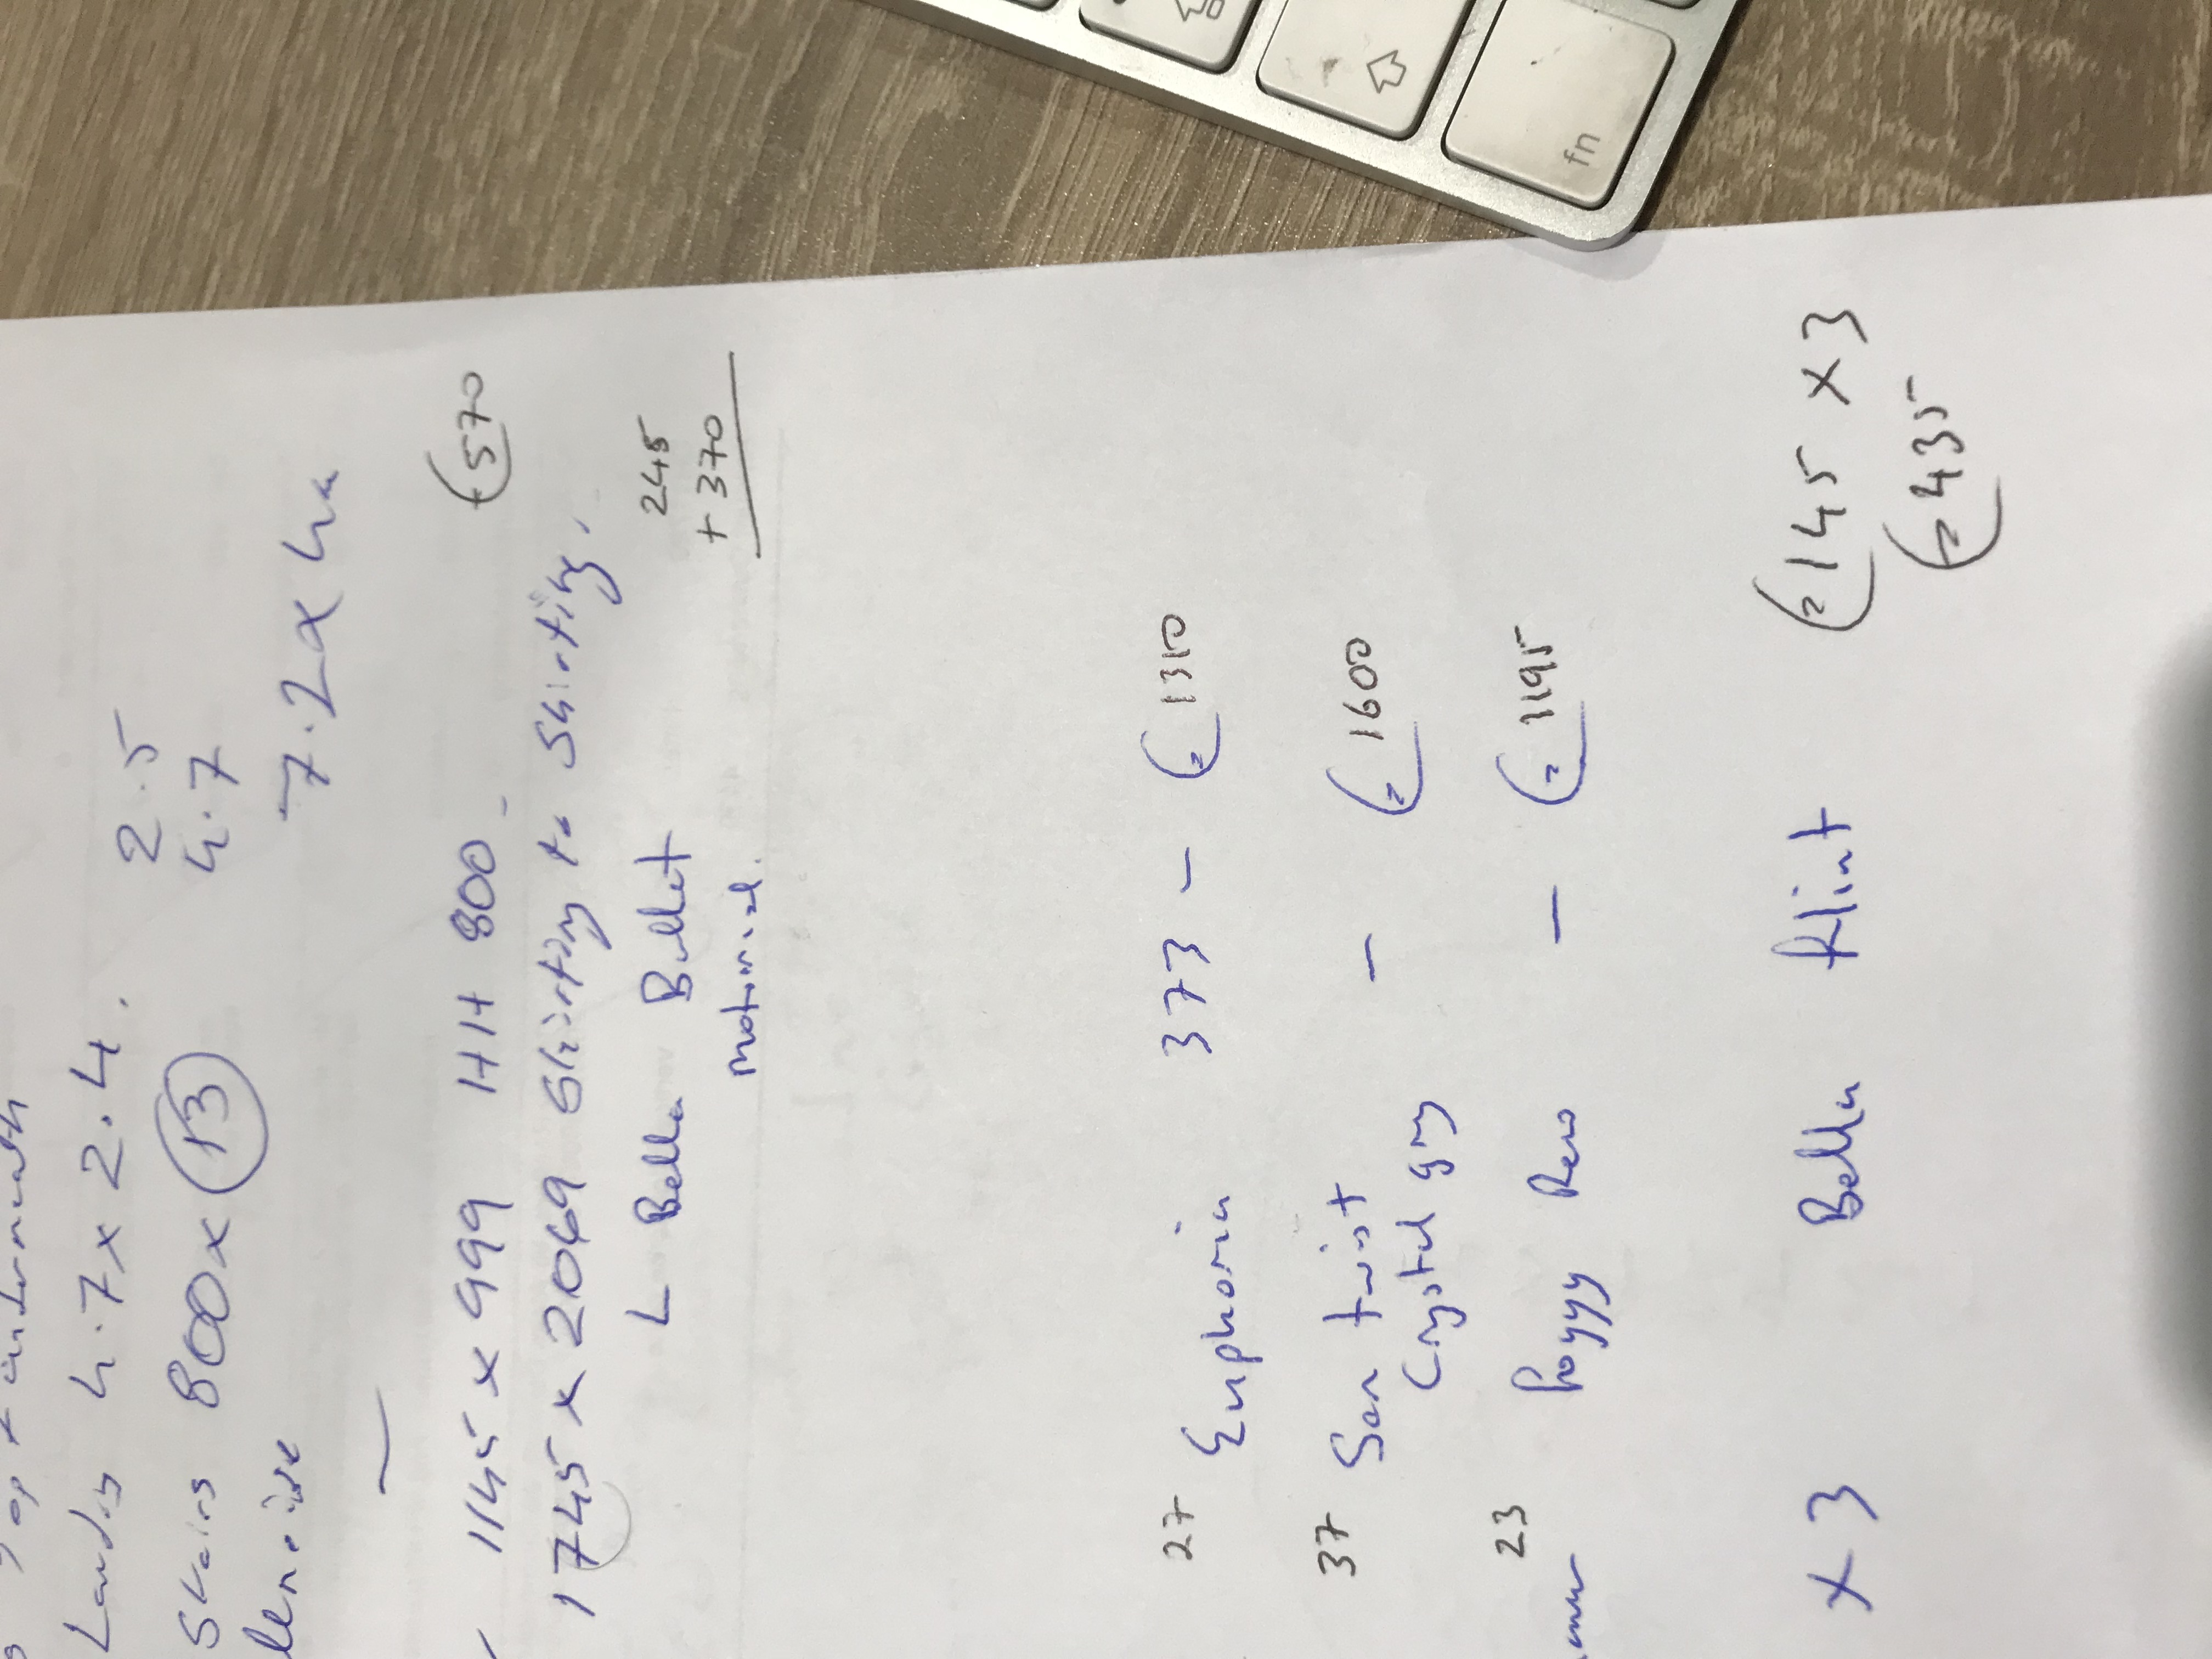 underneath
Landing 4.7 x 2.4.
2.5
Stairs 800 x 13
4.7
7.2 x 4m
1145 x 999 HH 800 -
€570
1745 x 2069 Skirting to Skirting.
L Bella Bullet
motorised.
245
+ 370
27 Euphoria 373 - €1310
37 San twist - €1600
Crystal gry
23 Peggy Reno - €1195
x 3 Bella flint €145 x 3
€435
fn